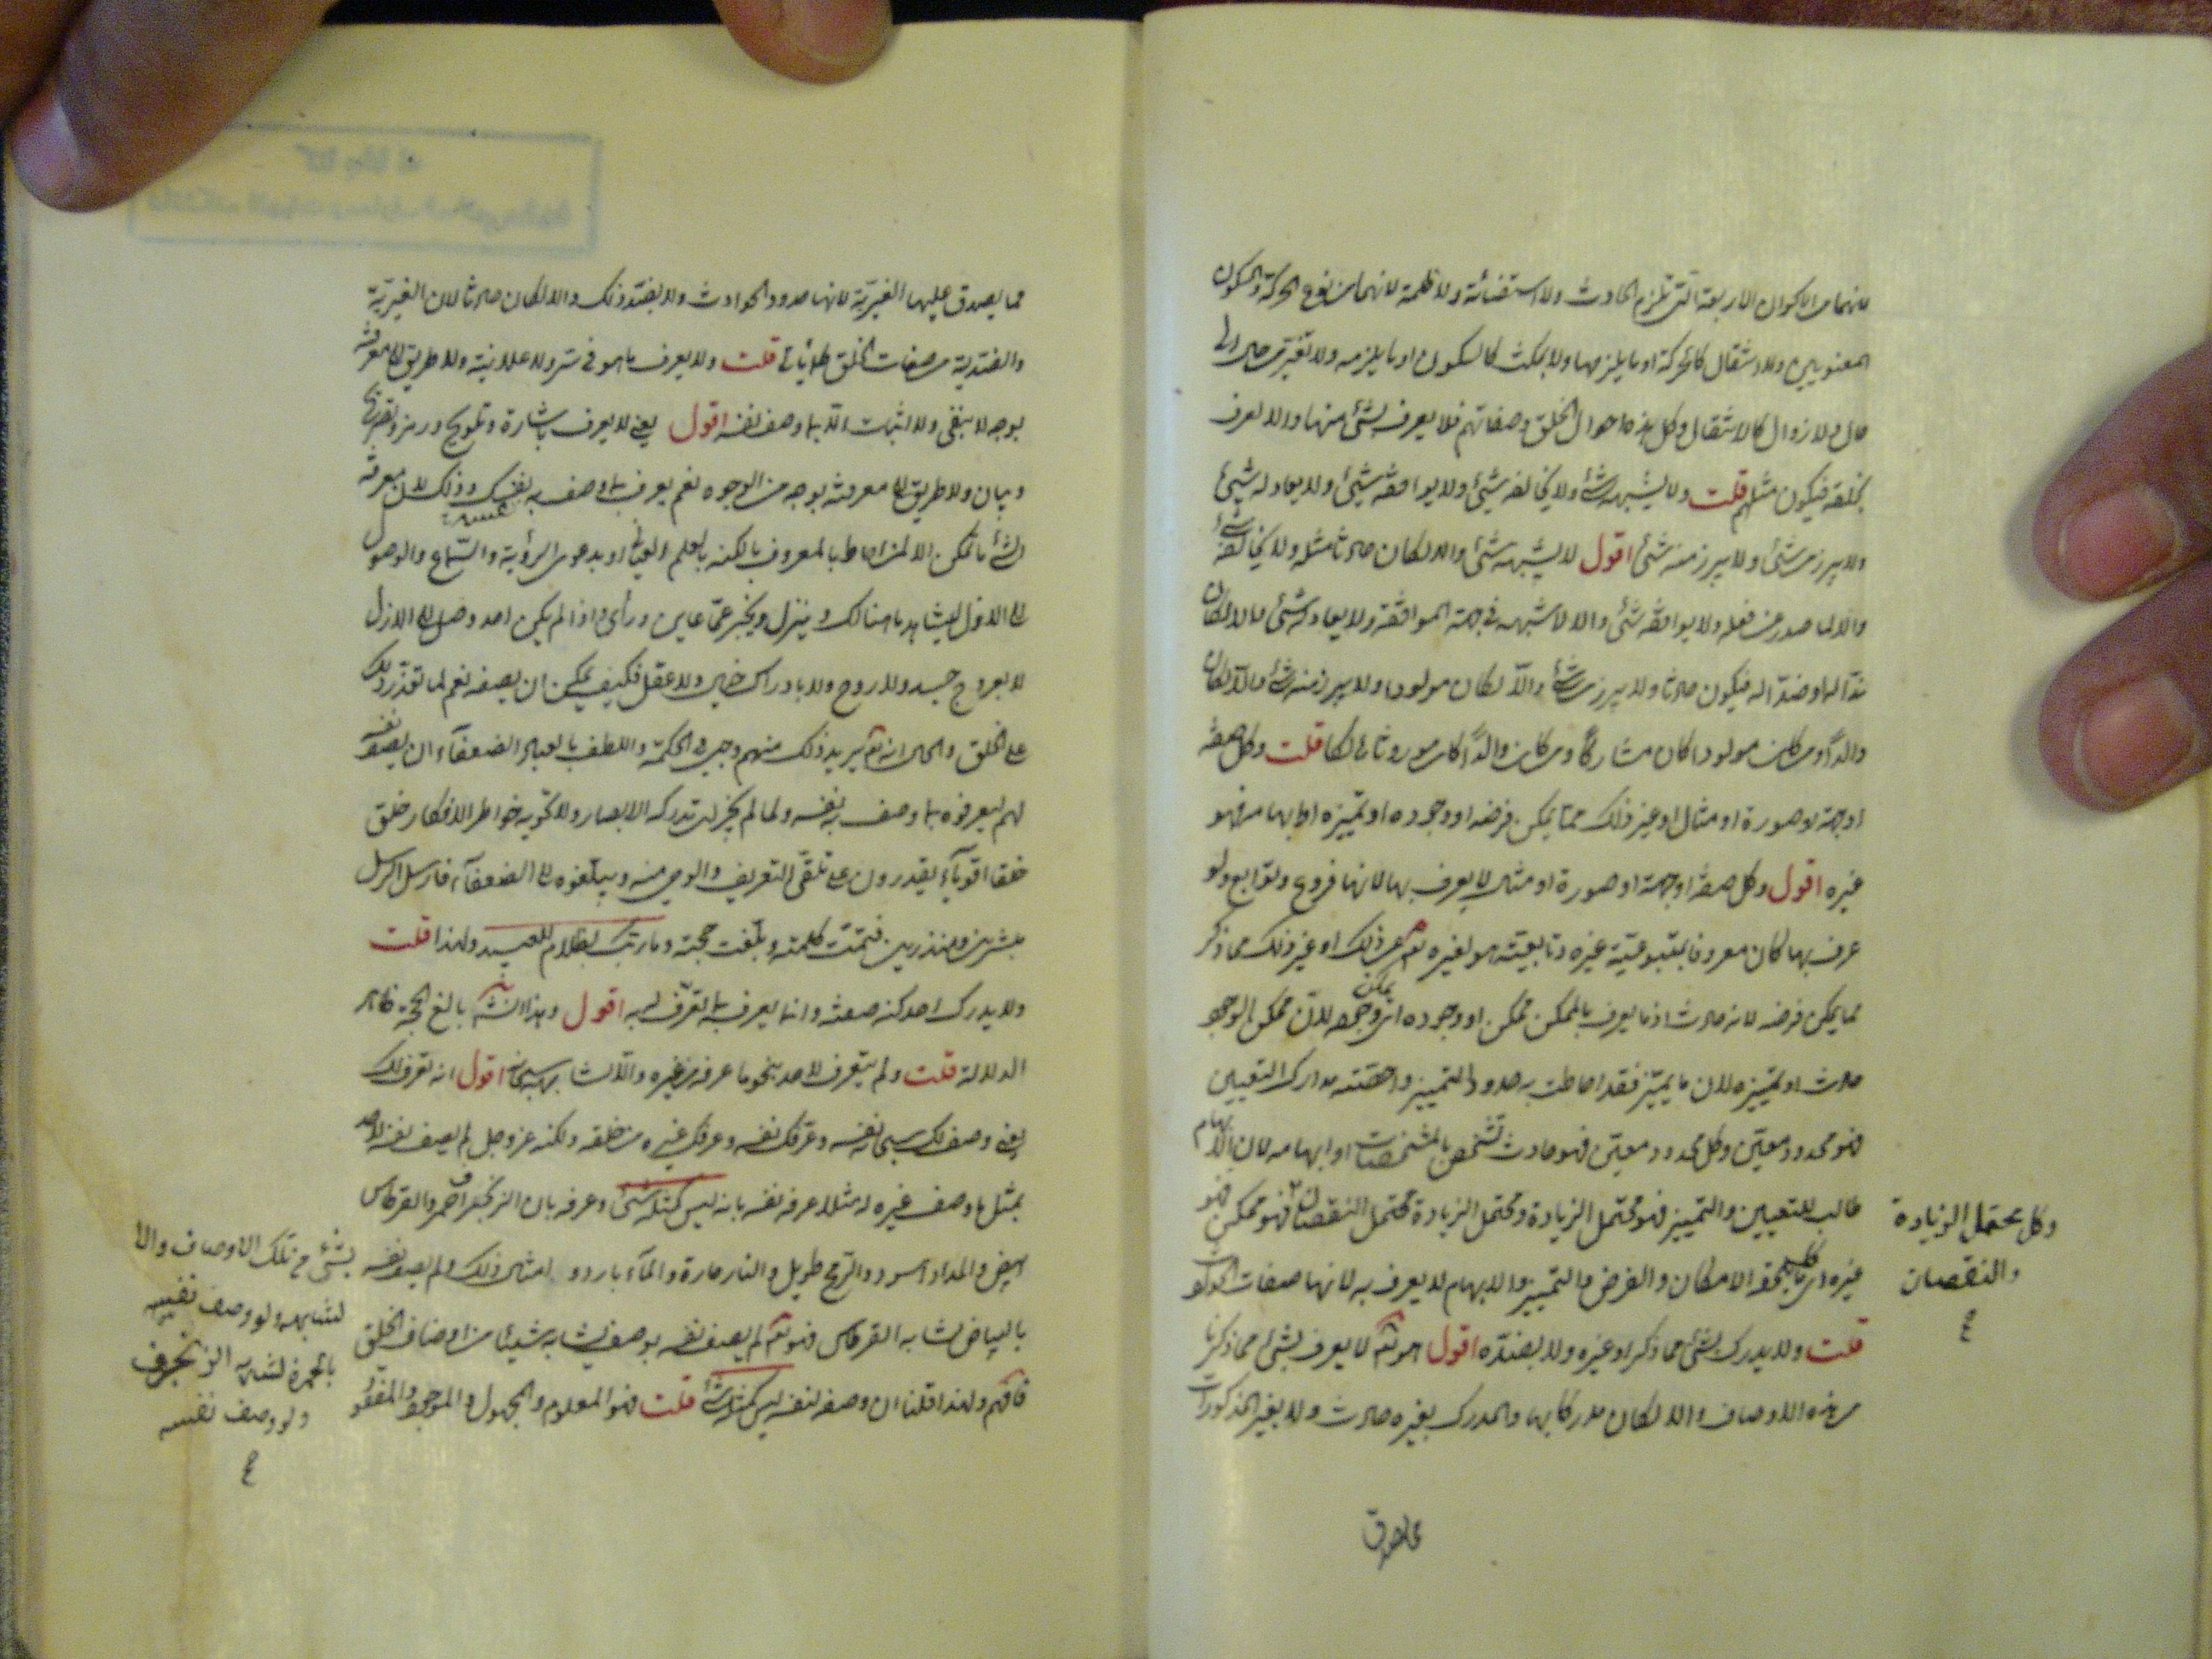 لانهما من الاكوان الاربعة التى تلزم الحادث ولا استضائة ولا ظلمة لانهما من نوع الحركة والسكون
المعنويين ولا انتقال كالحركة او ما يلزمها ولا مكث كالسكون او ما يلزمه ولا تغير من حال الى
حال ولا زوال كالانتقال وكل هذه احوال الخلق وصفاتهم فلا يعرف بشئ منها والا لعرف
بخلقه فيكون مثلهم قلت ولا يشبهه شئ ولا يخالفه شئ ولا يوافقه شئ ولا يعادله شئ
ولا يبرز من شئ ولا يبرز منه شئ اقول لا يشبهه شئ والا لكان حادثا مثله ولا يخالفه شئ
والا لما صدر من فعله ولا يوافقه شئ والا لاشبهه فى جهة الموافقة ولا يعادله شئ والا لكان
ندّا له او ضدّا له فيكون حادثا ولا يبرز من شئ والّا لكان مولودا ولا يبرز منه شئ والّا لكان
والدًا ومن كان مولودا كان مشاركًا ومن كان والدًا كان موروثا هالكا قلت وكل صفة
او جهة او صورة او مثال او غير ذلك مما يمكن فرضه او وجوده او تمييزه او ابهامه فهو
غيره اقول وكل صفة او جهة او صورة او مثال لا يعرف بها لانها فروع وتوابع ولو
عرف بها كان معروفا بمتبوعية غيره وتابعيته هو لغيره تعم عن ذلك او غير ذلك مما ذكر
مما يمكن فرضه لانه حادث اذ ما يعرف بالممكن ممكن او وجوده اى يمكن وجوده لانّ ممكن الوجود
حادث او تمييزه لان ما يميّز فقد احاطت به حدود التمييز واحصته مدارك التعيين
فهو محدود معيّن وكل محدود معيّن فهو حادث تشخص بالمشخصات او ابهامه لان الابهام
طالب للتعيين والتمييز فهو محتمل الزيادة ومحتمل الزيادة محتمل النقصان فهو ممكن فهو
غيره اى كلما يلحقه الامكان والفرض والتمييز والابهام لا يعرف به لانها صفات الحوادث
قلت ولا يدرك بشئ مما ذكر او غيره ولا بضدّه اقول هو تعم لا يعرف بشئ مما ذكرنا
من هذه الاوصاف والا لكان مدركا بها والمدرك بغيره حادث ولا بغير المذكورات
وكل محتمل الزيادة
والنقصان
ع
مما يصدق
مما يصدق عليها الغيريّة لانها حدود الحوادث ولا بضدّ ذلك والا لكان حادثا لان الغيريّة
والضديّة من صفات الخلق قلت ولا يعرف ما هو فى سر ولا علانية ولا طريق الى معرفته
بوجه لا بنفى ولا اثبات الّا بما وصف نفسه اقول يعنى لا يعرف باشارة وتلويح ورمز
وبيان ولا طريق الى معرفته بوجه من الوجوه نعم يعرف بما وصف به نفسه وذلك لان معرفة
الشئ ما تمكن الا لمن احاط بالمعروف بالكنه بالعلم العيانى او بدعوى الرؤية والسماع والوصول
الى الازل ليشاهد ما هنالك وينزل ويخبر عمّا عاين ورأى واذا لم يكن احد وصل الى الازل
لا بعروج جسد ولا روح ولا بادراك خيال ولا عقل فكيف يمكن ان يصفه نعم لما تعذّر ذلك
على الخلق والحال انه تعم يريد ذلك منهم وجب فى الحكمة واللطف بالعباد الضعفآء ان يصف نفسه
لهم ليعرفوه بما وصف به نفسه ولما لم يجز ان تدركه الابصار ولا تحويه خواطر الافكار خلق
خلقا اقويآء يقدرون على تلقّى التعريف والوحى منه ويبلّغوه الى الضعفآء فارسل الرسل
مبشرين ومنذرين فتمّت كلمته وبلغت حجته وما ربّك بظلّام للعبيد ولهذا قلت
ولا يدرك احد كنه صفته وانما يعرف بما تعرّف به اقول وبهذا بالغ الحجة ظاهر
الدلالة قلت ولم يتعرف لاحد بنحو ما عرفه من غيره والّا لشابهه سبحانه اقول انه تعرف لك
يعنى وصف لك سبحانه نفسه وعرّفك نفسه وعرفك غيره من خلقه ولكنه عز وجل لم يصف نفسه لاحد
بمثل ما وصف غيره له مثلا عرفه نفسه بانه ليس كمثله شئ وعرفه بان الزنجفر احمر والقرطاس
ابيض والمداد اسود والرمح طويل والنار حارة والمآء بارد و امثال ذلك ولم يصف نفسه
بالبياض لشابه القرطاس فهو تعم لم يصف نفسه بوصف يشابه شيئا من اوصاف الخلق
فافهم ولهذا قلنا ان وصفه لنفسه ليس كمثله شئ قلت فهو المعلوم والمجهول والموجود والمفقود
بشئ من تلك الاوصاف والا
لشابهه ولو وصف نفسه
بالحمرة لشابه الزنجرف
ولو وصف نفسه
ع